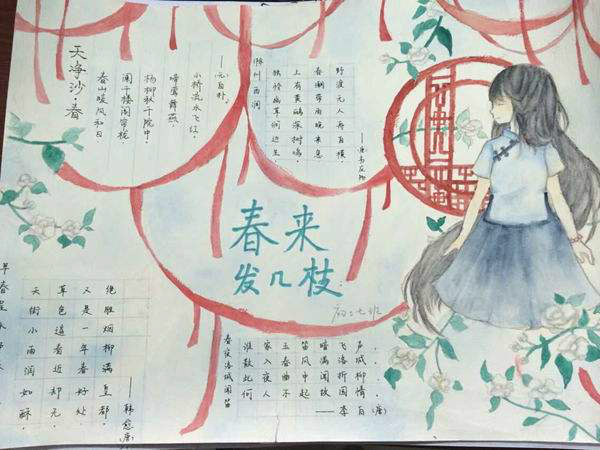 天净沙·春
春山暖风和日
阑干楼阁帘栊
杨柳秋千院中.
啼莺舞燕.
小桥流水飞红.
——元白朴.
滁州西涧
独怜幽草涧边生
上有黄鹂深树鸣.
春潮带雨晚来急
野渡无人舟自横.
——唐韦应物
春来
发几枝
初二七班
早春呈水部
天街小雨润如酥.
草色遥看近却无.
又是一年春好处.
绝胜烟柳满皇都.
——韩愈(唐)
春夜洛城闻笛
谁家玉笛暗飞声
散入春风满洛城
此夜曲中闻折柳
何人不起故园情
——李白(唐)